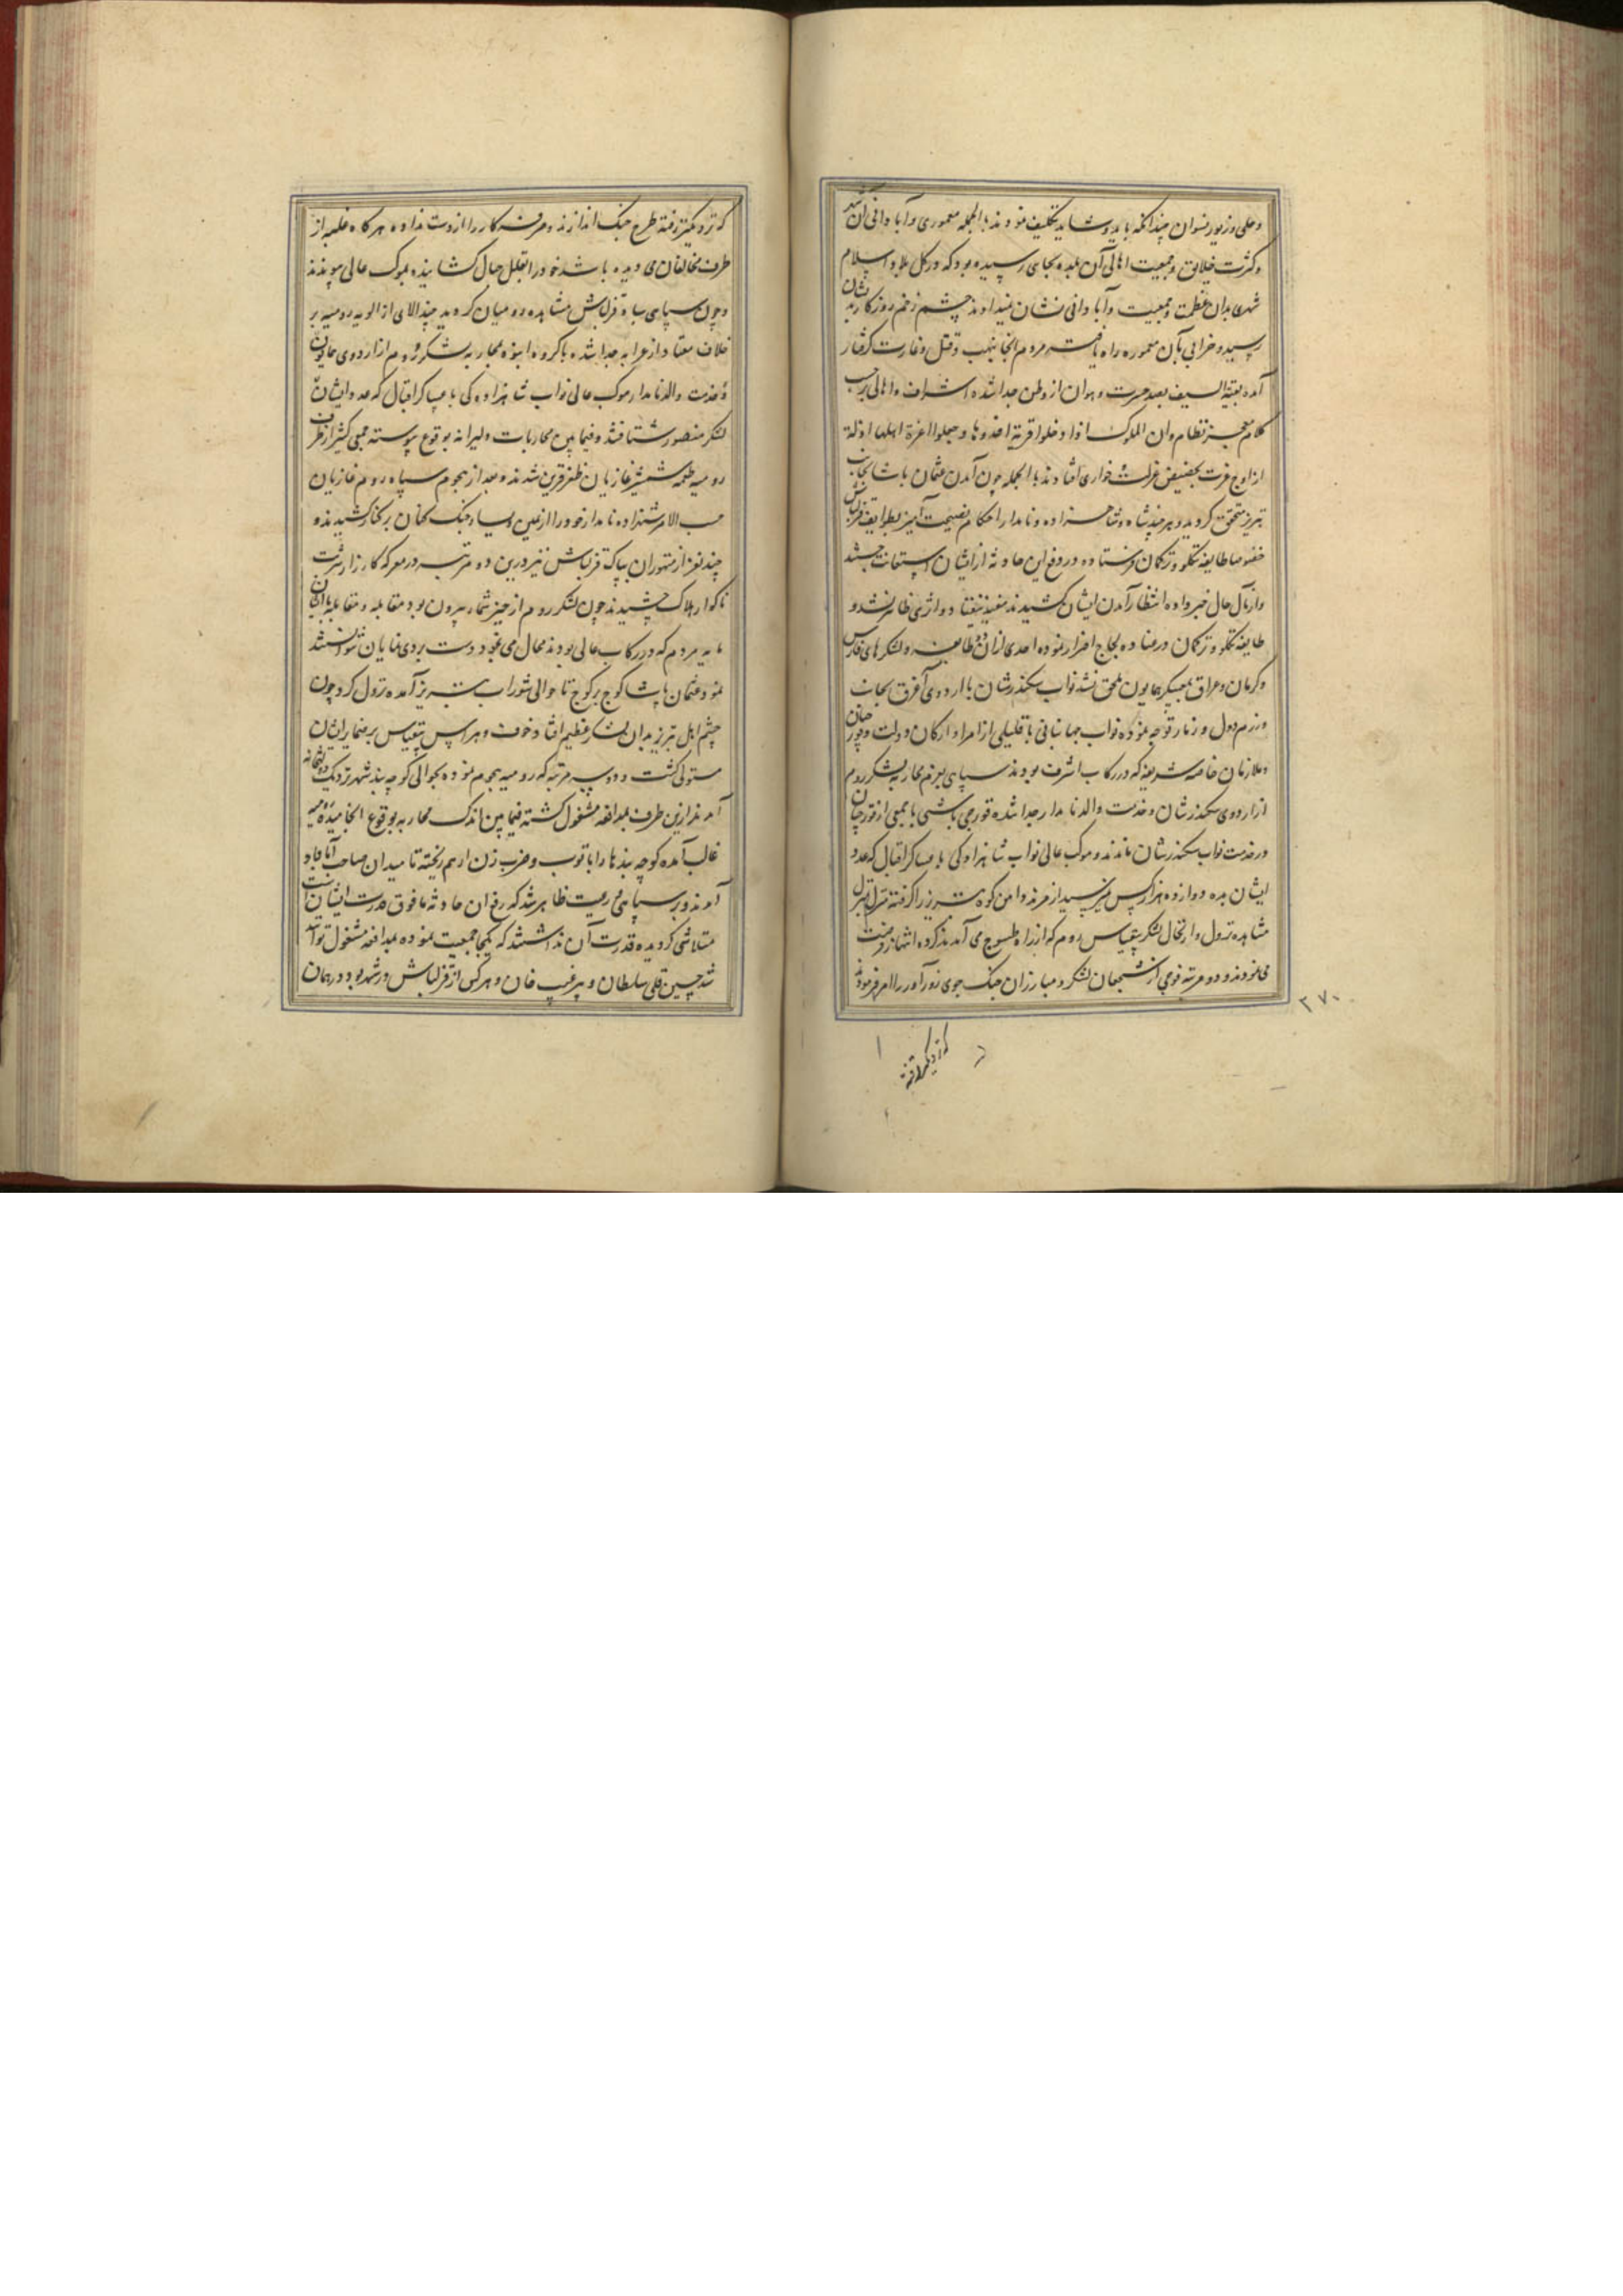 و حلی و زیور نسوان چندانکه باید و شاید تکلیف نمودند بالجمله معموری و آبادانی آن شهر
و کثرت خلایق و جمعیت اهالی آن بلده بجای رسیده بود که در کل بلاد اسلام
شهری بدان عظمت و جمعیت و آبادانی نشان نمیدادند چشم زخم روزگار بدیشان
رسید و خرابی بآن معموره راه یافته مردم آنجا بنهب و قتل و غارت گرفتار
آمده بقیة السیف بصد حسرت و هوان از وطن جدا شده اشراف و اهالی بر حسب
کلام معجز نظام و ان الملوک اذا دخلوا قریة افسدوها و جعلوا اعزة اهلها اذلة
از اوج عزت بحضیض عزلت و خواری افتادند بالجمله چون آمدن عثمان پاشا بجانب
تبریز متحقق گردید و هر چند شاه و شاهزاده نامدار احکام نصیحت آمیز بطوایف قزلباش
خصوصا طایفه تکلو و ترکمان فرستاده در دفع این حادثه از ایشان استعانت جستند
و از مآل حال خبر داده انتظار آمدن ایشان کشیدند مفید نیفتاد و اثری ظاهر نشد و
طایفه تکلو و ترکمان در عناد و لجاج اصرار نموده احدی از آن دو طایفه و لشکرهای فارس
و کرمان و عراق بمعسکر همایون ملحق نشد نواب سکندرشان با اردوی آغرق بجانب
و رزم دول و زنار توجه نموده نواب جهانبانی با قلیلی از امرا و ارکان دولت و قورچیان
و ملازمان خاصه شریفه که در رکاب اشرف بودند سپاهی بعزم محاربه لشکر روم
از اردوی سکندرشان و خدمت والد نامدار جدا شده قورچی باشی با جمعی از قورچیان
در خدمت نواب سکندرشان ماندند و موکب عالی نواب شاهزادگی با عساکر اقبال که عدد
ایشان بده دوازده هزار کس میرسید از مرند دامن کوه تبریز را گرفته منزل بمنزل
مشاهده نزول و ارتحال لشکر بیقیاس روم که از راه طسوج می آمدند کرده انتهاز فرصت
می نمودند و دو مرتبه فوجی از شجعان لشکر و مبارزان جنگ جوی زورآور را امر فرمودند
۲۷۰
که نزدیکتر رفته
که نزدیکتر رفته طرح جنگ اندازند و سررشته کار را از دست نداده هر گاه غلبه از
طرف مخالفان می دیده باشند خود را بقلل جبال کشانیده بموکب عالی پیوندند
و چون سپاهی سپاه قزلباش مشاهده رومیان گردید چند آلای از الویه رومیه بر
خلاف معتاد از عرابه جدا شده با گروه انبوه بمحاربه لشکر روم از اردوی همایون
و خدمت والد نامدار موکب عالی نواب شاهزادگی با عساکر اقبال که عدد ایشان
لشکر منصور شتافتند و فیما بین محاربات دلیرانه بوقوع پیوسته جمعی کثیر از طرف
رومیه طعمه شمشیر غازیان ظفر قرین شدند و بعد از هجوم سپاه روم غازیان
حسب الامر شاهزاده نامدار خود را از یمین و یسار جنگ کنان بر کنار کشیدند و
چند نفر از متهوران بیباک قزلباش نیز درین دو مرتبه در معرکه کارزار شربت
ناگوار هلاک چشیدند چون لشکر روم از حیز شمار بیرون بود مقابله و مقاتله با ایشان
مایه مردم که در رکاب عالی بودند محال می نمود دست بردی نمایان نتوانستند
نمود عثمان پاشا کوچ بر کوچ تا حوالی شوراب تبریز آمده نزول کرد چون
چشم اهل تبریز بدان لشکر عظیم افتاد خوف و هراس بیقیاس بر ضمایر ایشان
مستولی گشت و دو سه مرتبه که رومیه هجوم نموده بحوالی کوچه بند شهر نزدیک دولتخانه
آمدند ازین طرف بمدافعه مشغول گشته فیما بین اندک محاربه بوقوع انجامیده رومیه
غالب آمده کوچه بندها را با توپ و ضرب زن از هم ریخته تا میدان صاحب آباد
آمدند و بر سپاهی و رعیت ظاهر شد که رفع آن حادثه مافوق قدرت ایشان است
متلاشی گردیده قدرت آن نداشتند که یکجا جمعیت نموده بمدافعه مشغول توانند
شد حسین قلی سلطان و پیر غیب خان و هر کس از قزلباش در شهر بود در همان